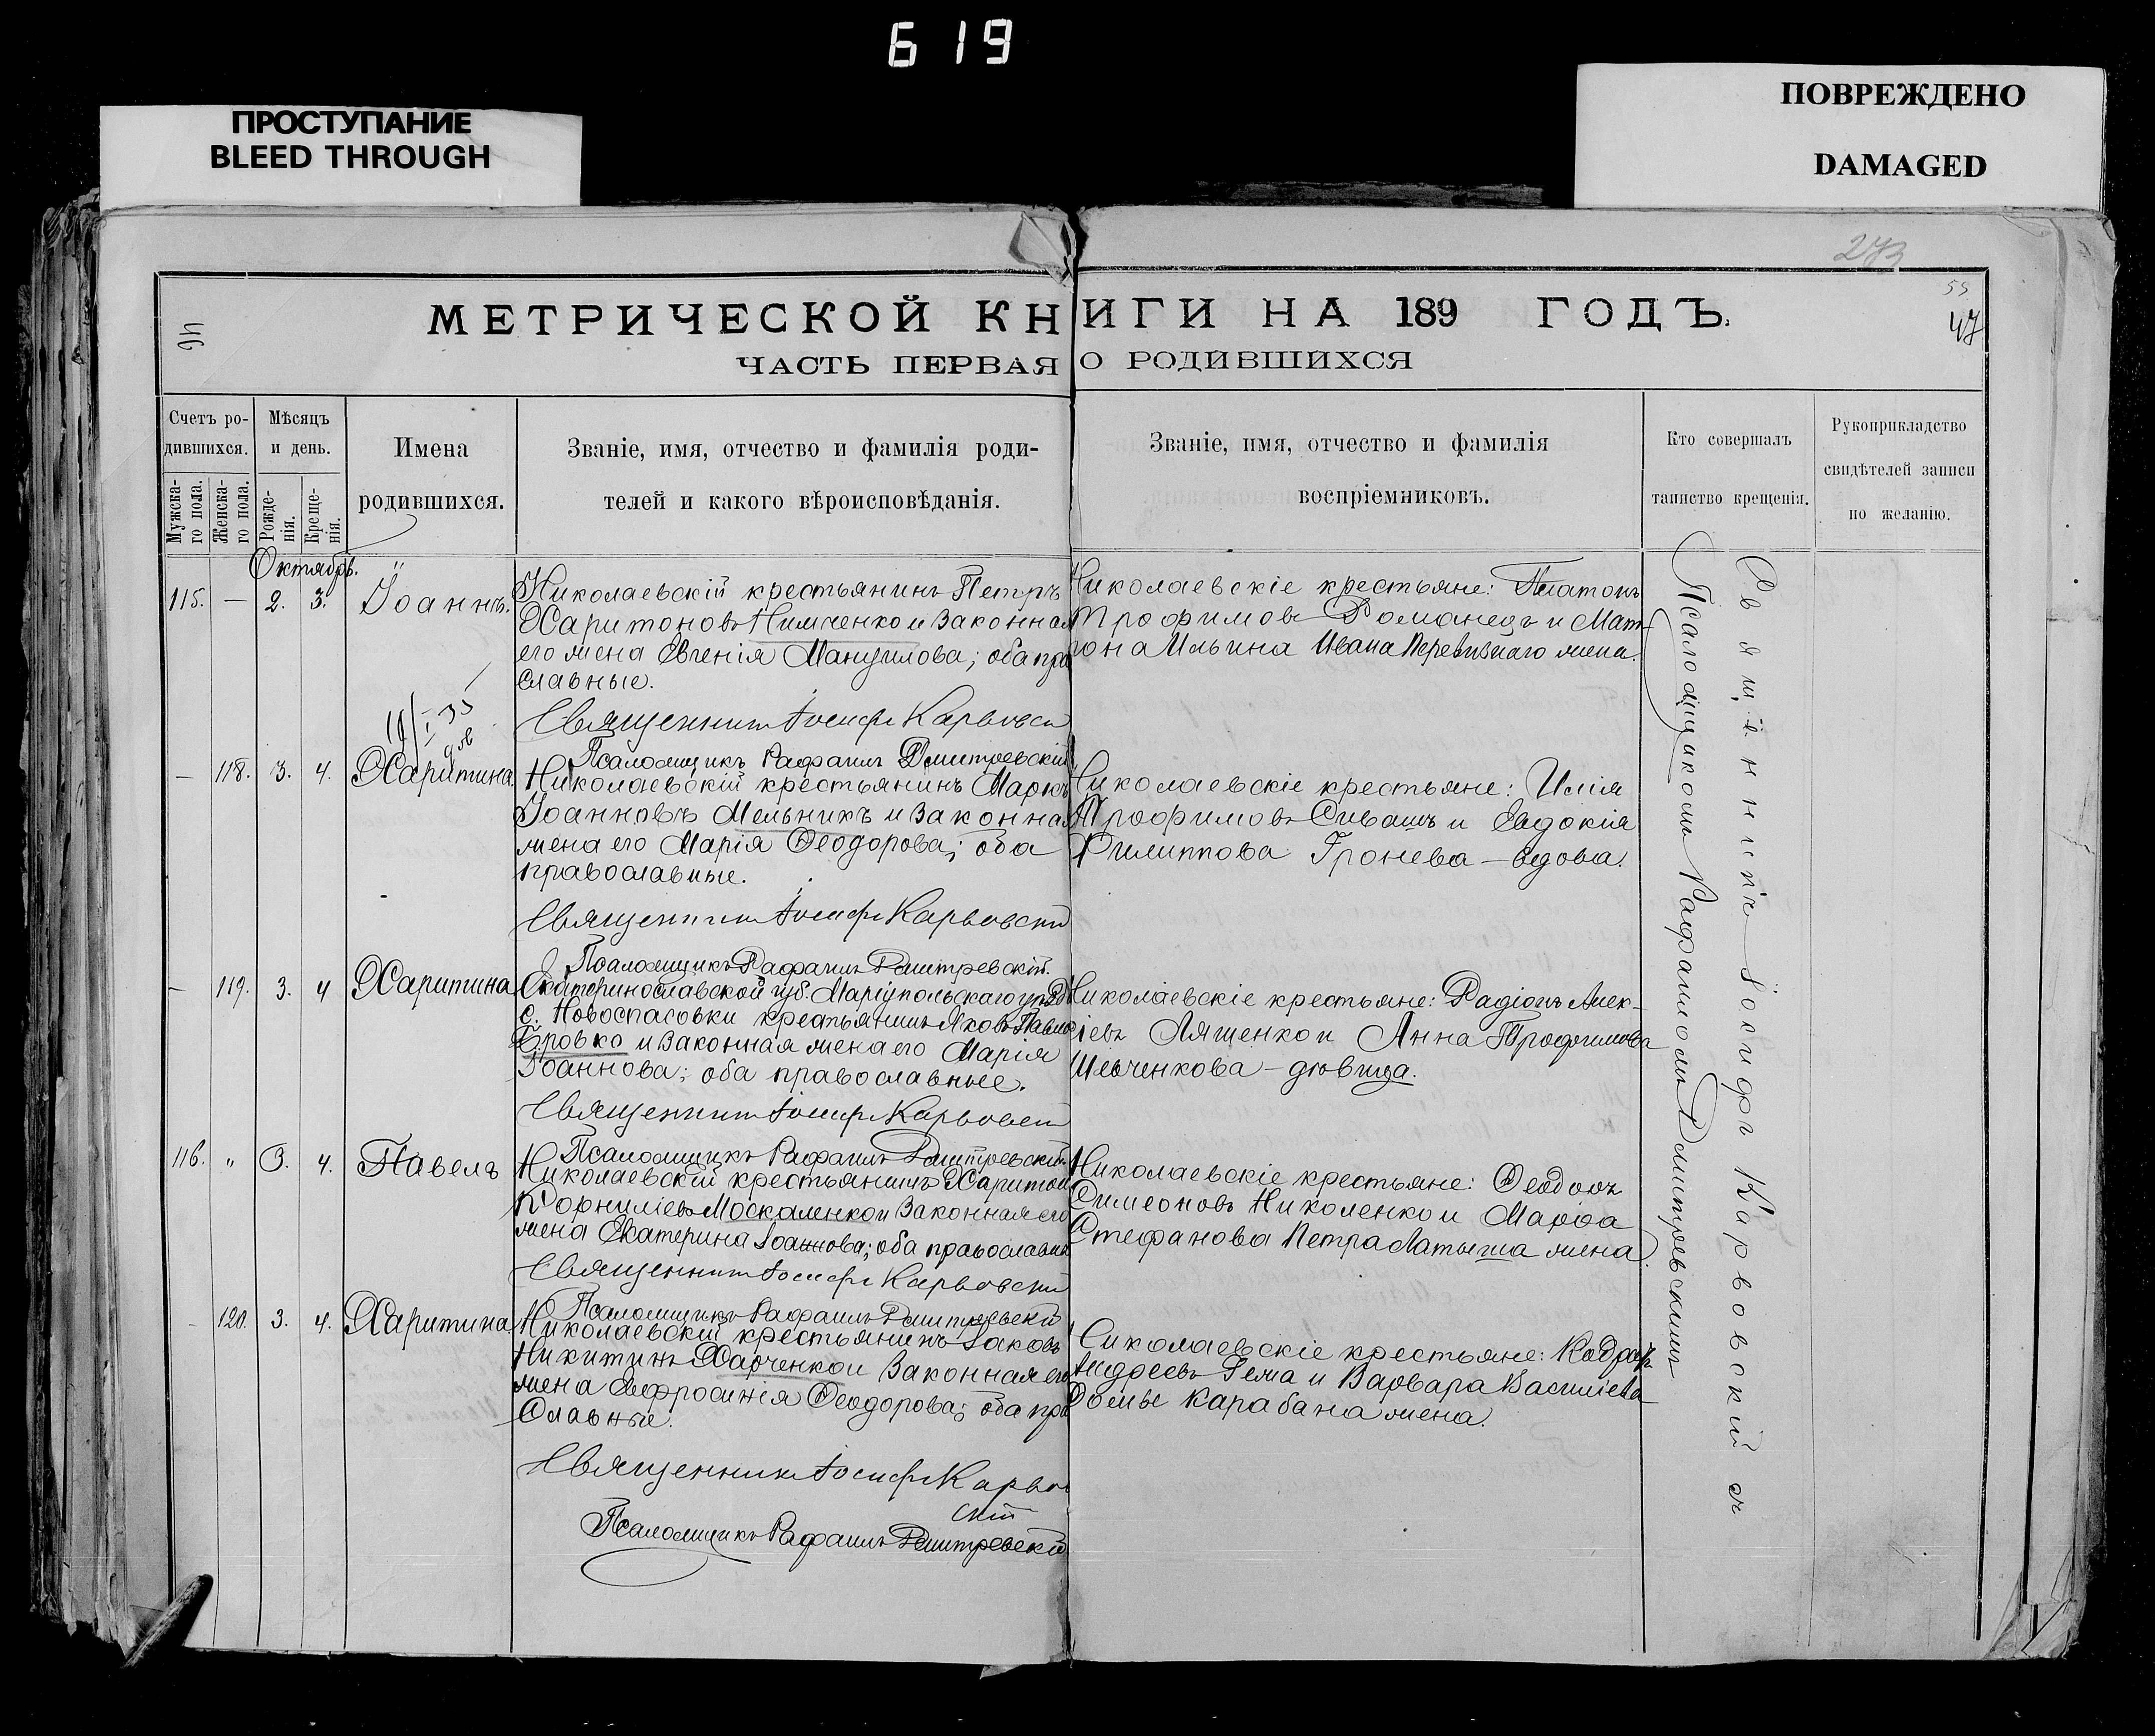 619
ПРОСТУПАНИЕ
BLEED THROUGH
ПОВРЕЖДЕНО
DAMAGED
273
МЕТРИЧЕСКОЙ КНИГИ НА 189 ГОДЪ.
47
ЧАСТЬ ПЕРВАЯ О РОДИВШИХСЯ
Счетъ ро-
дившихся.
Мужска-
го пола.
Женска-
го пола.
Мѣсяцъ
и день.
Рожде-
нія.
Креще-
нія.
Имена
родившихся.
Званіе, имя, отчество и фамилія роди-
телей и какого вѣроисповѣданія.
Званіе, имя, отчество и фамилія
воспріемниковъ.
Кто совершалъ
таинство крещенія.
Рукоприкладство
свидѣтелей записи
по желанію.
Октябрь.
115. — 2. 3. Іоаннъ.
Николаевскій крестьянинъ Петръ
Харитоновъ Нимченко и законная
его жена Евгенія Мануилова; оба пра
славные.
Николаевскіе крестьяне: Платонъ
Трофимовъ Романецъ и Мат
рона Ильина Ивана Перевизнаго жена.
Священникъ Іосифъ Карвовск
Псаломщикъ Рафаилъ Дмитревскій
— 118. 3. 4. Харитина.
Николаевскій крестьянинъ Марко
Іоанновъ Мельникъ и законная
жена его Марія Ѳеодорова; оба
православные.
Николаевскіе крестьяне: Илія
Трофимовъ Сивашъ и Евдокія
Филиппова Гронева — вдова.
Священникъ Іосифъ Карвовскій
Псаломщикъ Рафаилъ Дмитревскій.
— 119. 3. 4 Харитина
Екатеринославской губ. Маріупольскаго уѣзда
с. Новоспасовки крестьянинъ Яковъ Павло
Бровко и законная жена его Марія
Іоаннова; оба православные.
Николаевскіе крестьяне: Радіонъ Алек-
сіевъ Лященко и Анна Трофимова
Шевченкова — дѣвица.
Священникъ Іосифъ Карвовскій
Псаломщикъ Рафаилъ Дмитревскій
116. " 3. 4. Павелъ
Николаевскій крестьянинъ Харитон
Корниліевъ Москаленко и законная его
жена Екатерина Іоаннова; оба православн
Николаевскіе крестьяне: Ѳеодоръ
Симеоновъ Николенко и Марѳа
Стефанова Петра Латыша жена.
Священникъ Іосифъ Карвовскій
Псаломщикъ Рафаилъ Дмитревскій
- 120. 3. 4. Харитина
Николаевскій крестьянинъ Іаковъ
Никитинъ Харченко и законная его
жена Евфросинія Ѳеодорова; оба пра
славные.
Николаевскіе крестьяне: Кодратъ
Андреевъ Рема и Варвара Василіева
Карабана жена.
Священникъ Іосифъ Карвов
скій
Псаломщикъ Рафаилъ Дмитревскій
Священникъ Іосифъ Карвовскій съ
Псаломщикомъ Рафаиломъ Дмитревскимъ